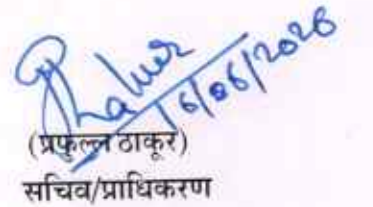 Thakur
16/06/2026
(प्रफुल्ल ठाकूर)
सचिव/प्राधिकरण